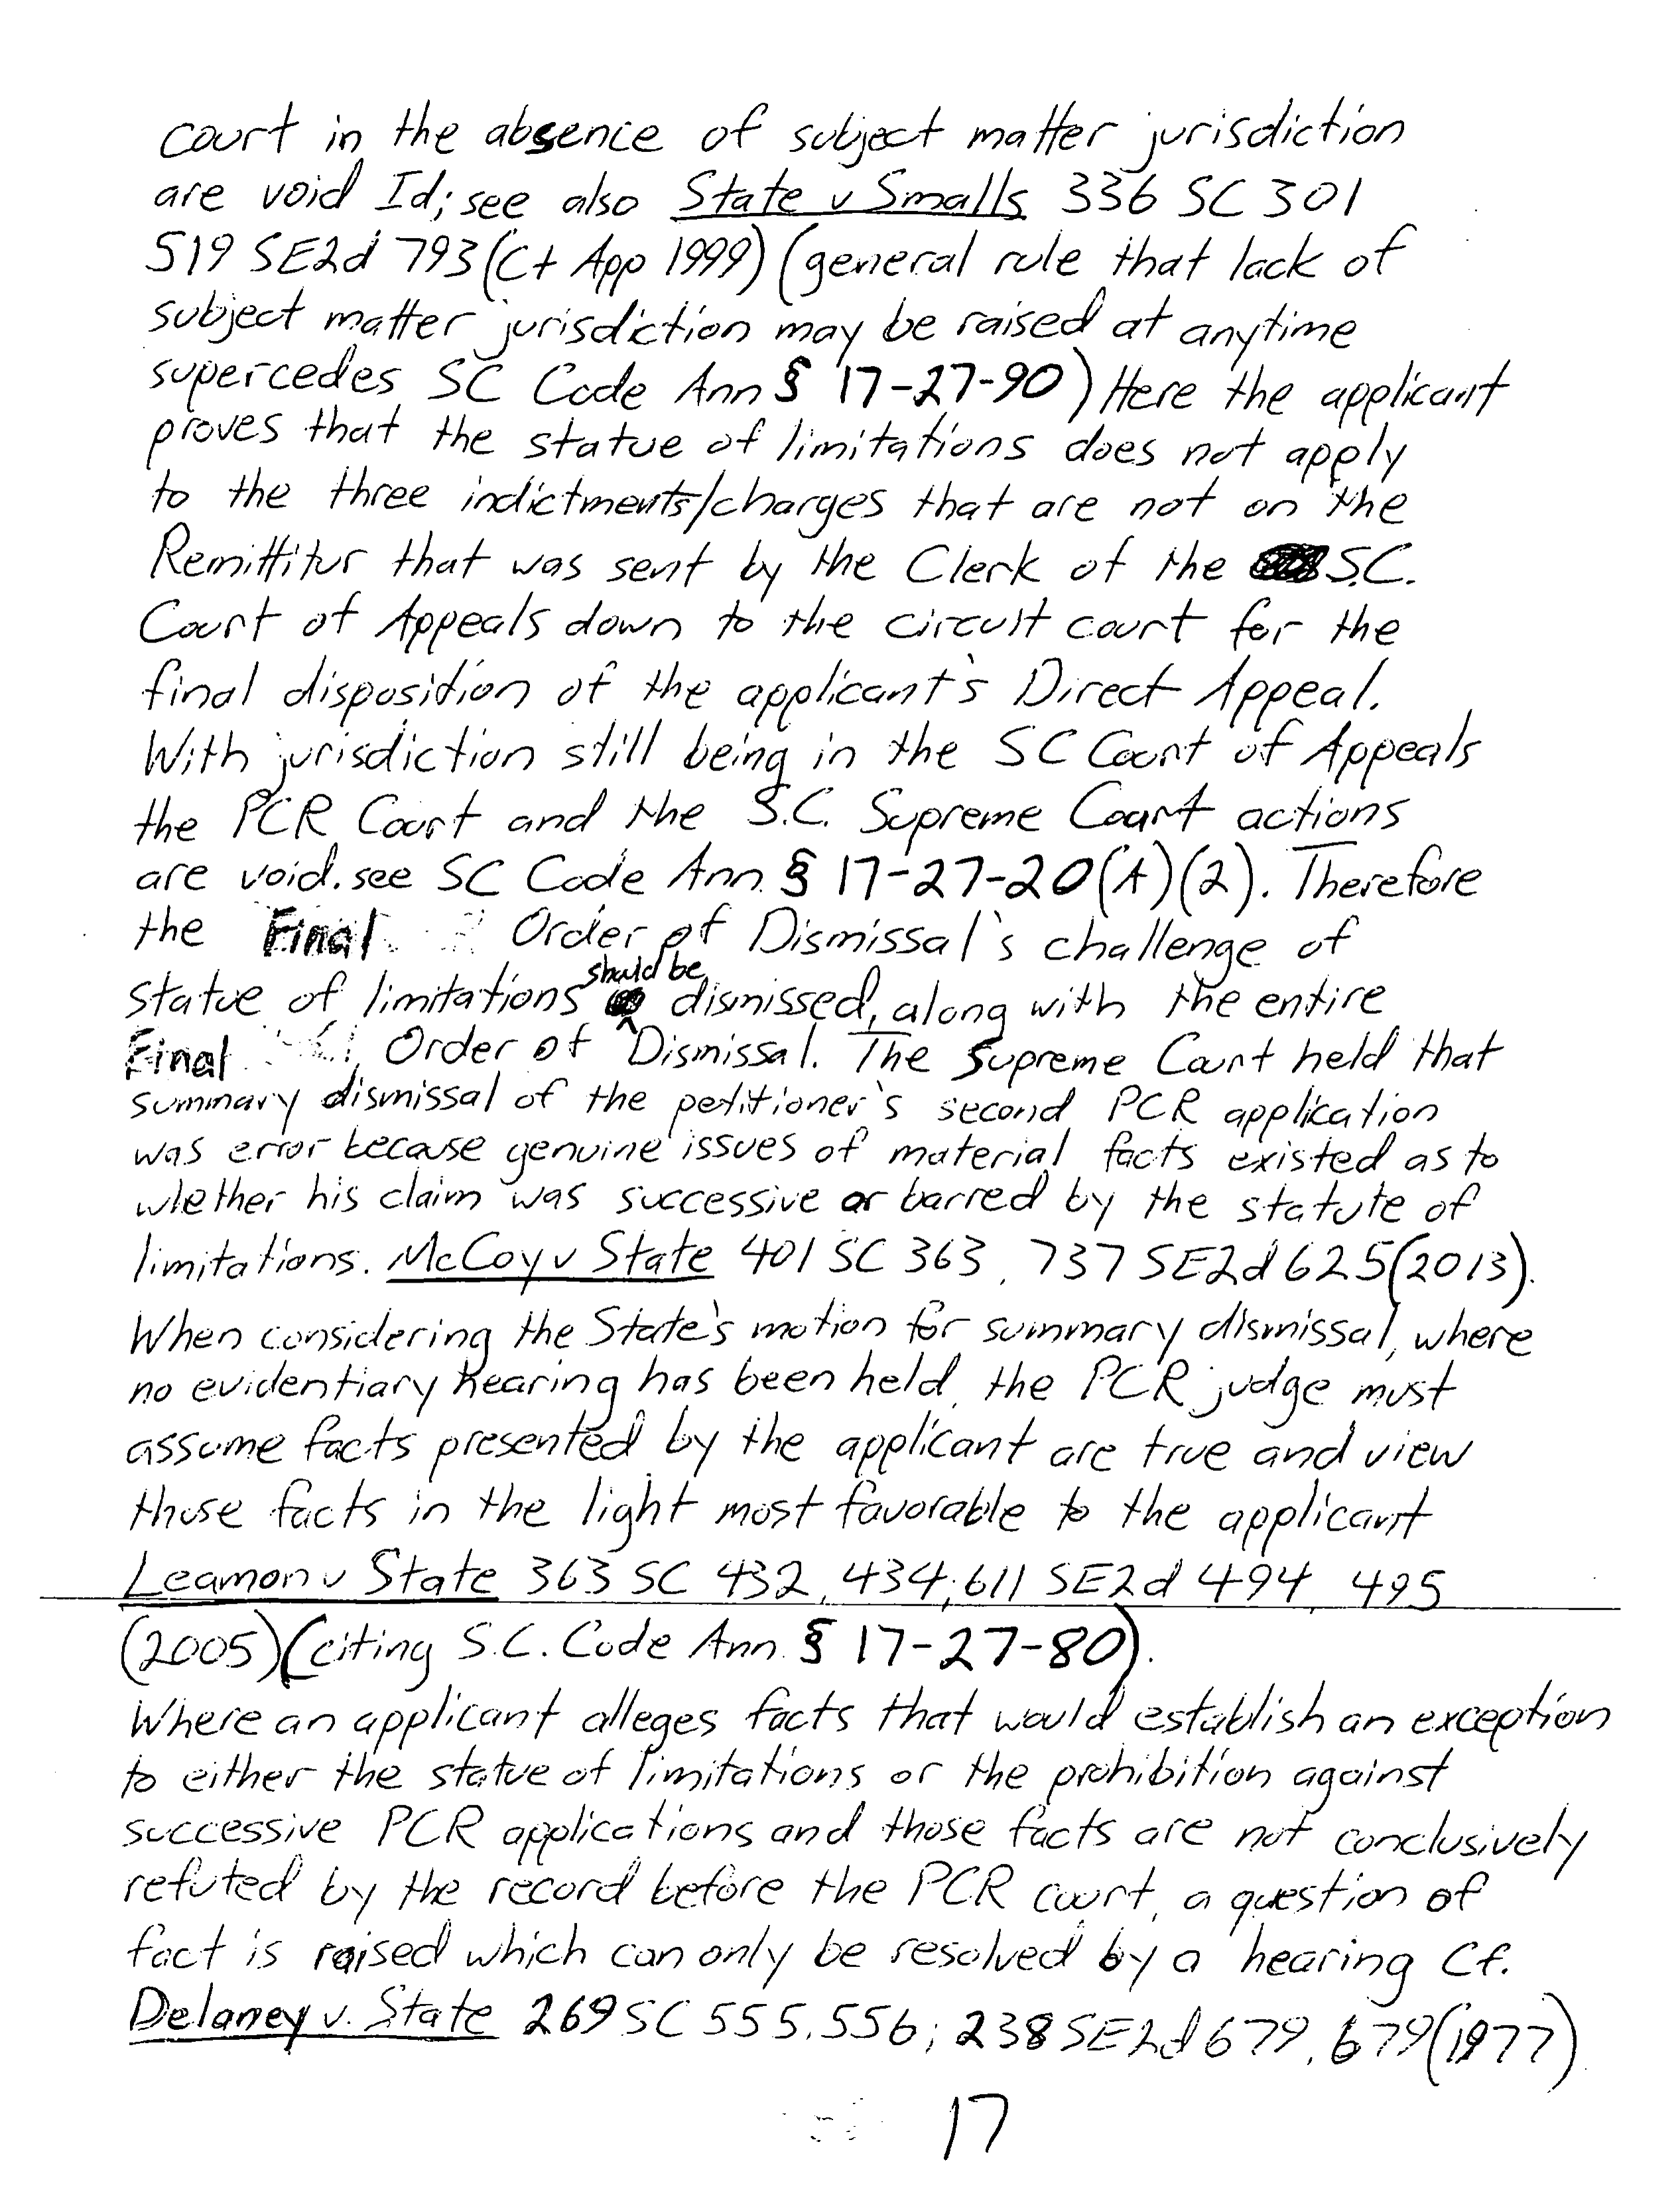 court in the absence of subject matter jurisdiction
are void Id; see also State v Smalls 336 SC 301
519 SE2d 793 (Ct App 1999) (general rule that lack of
subject matter jurisdiction may be raised at anytime
supercedes SC Code Ann § 17-27-90) Here the applicant
proves that the statue of limitations does not apply
to the three indictments/charges that are not on the
Remittitur that was sent by the Clerk of the S.C.
Court of Appeals down to the circuit court for the
final disposition of the applicant's Direct Appeal.
With jurisdiction still being in the SC Court of Appeals
the PCR Court and the S.C. Supreme Court actions
are void. see SC Code Ann. § 17-27-20(A)(2). Therefore
the Final Order of Dismissal's challenge of
statue of limitations should be dismissed, along with the entire
Final Order of Dismissal. The Supreme Court held that
summary dismissal of the petitioner's second PCR application
was error because genuine issues of material facts existed as to
whether his claim was successive or barred by the statute of
limitations. McCoy v State 401 SC 363, 737 SE2d 625 (2013).
When considering the State's motion for summary dismissal, where
no evidentiary hearing has been held, the PCR judge must
assume facts presented by the applicant are true and view
those facts in the light most favorable to the applicant
Leamon v State 363 SC 432, 434; 611 SE2d 494, 495
(2005) (citing S.C. Code Ann. § 17-27-80).
Where an applicant alleges facts that would establish an exception
to either the statue of limitations or the prohibition against
successive PCR applications and those facts are not conclusively
refuted by the record before the PCR court, a question of
fact is raised which can only be resolved by a hearing Cf.
Delaney v. State 269 SC 555, 556; 238 SE2d 679, 679 (1977)
17